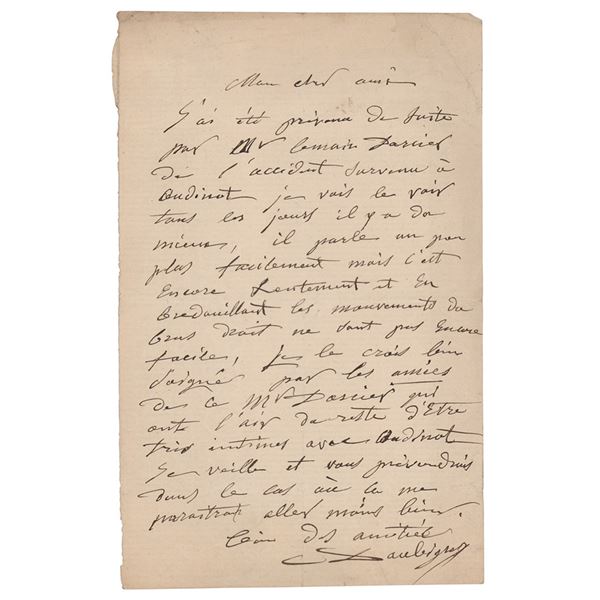 Mon cher ami
J'ai été prévenu de suite
par Mr lemain Darcier
de l'accident survenu à
Oudinot je vais le voir
tous les jours il y a du
mieux, il parle un peu
plus facilement mais c'est
Encore Lentement et En
bredouillant les mouvements du
bras droit ne sont pas Encore
facile, je le crois bien
soigné par les amies
de ce Mr Darcier qui
ont l'air du reste d'Etre
très intimes avec Oudinot
Je veille et vous préviendrais
dans le cas où ça me
paraitrait aller moins bien.
des amitiés
Daubigny